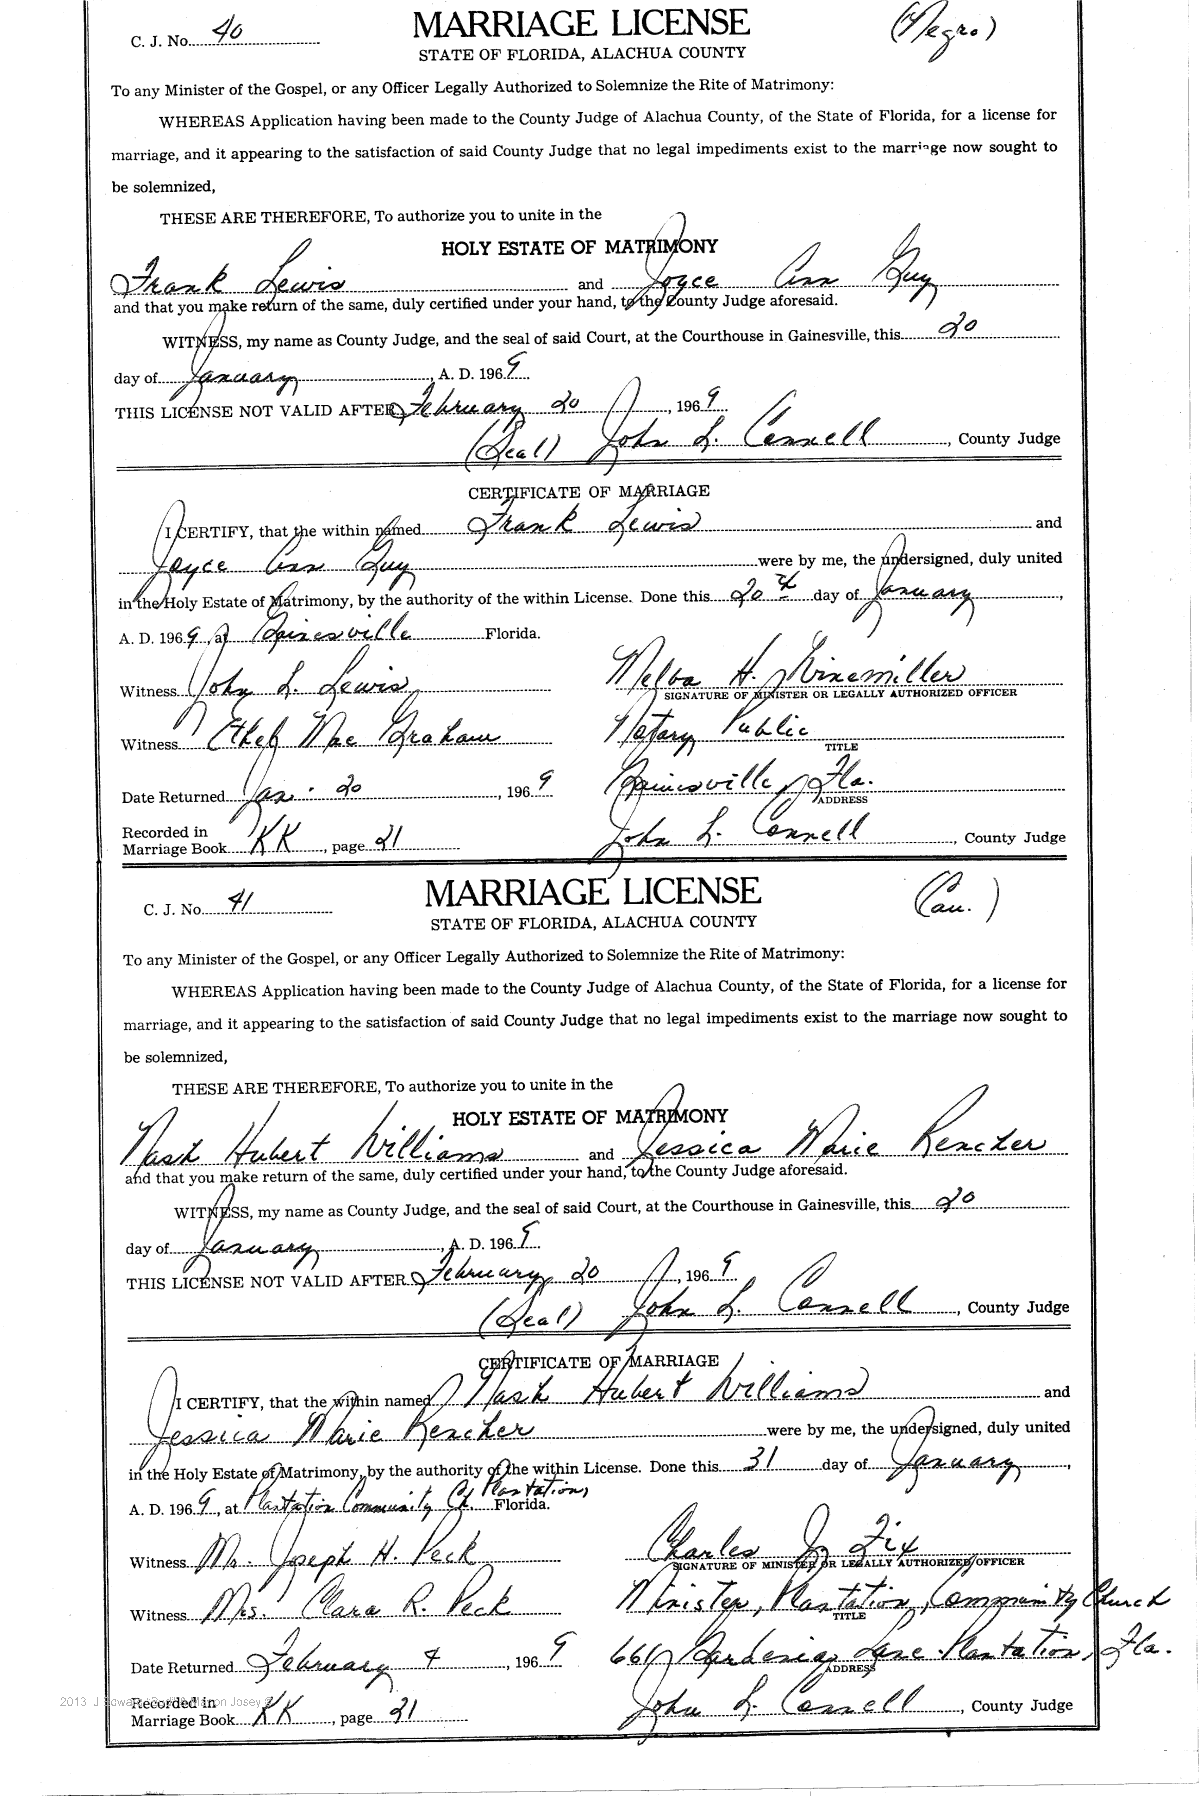 C. J. No. 40
MARRIAGE LICENSE
(Negro)
STATE OF FLORIDA, ALACHUA COUNTY
To any Minister of the Gospel, or any Officer Legally Authorized to Solemnize the Rite of Matrimony:
WHEREAS Application having been made to the County Judge of Alachua County, of the State of Florida, for a license for
marriage, and it appearing to the satisfaction of said County Judge that no legal impediments exist to the marriage now sought to
be solemnized,
THESE ARE THEREFORE, To authorize you to unite in the
HOLY ESTATE OF MATRIMONY
Frank Lewis and Joyce Ann Guy
and that you make return of the same, duly certified under your hand, to the County Judge aforesaid.
WITNESS, my name as County Judge, and the seal of said Court, at the Courthouse in Gainesville, this 20
day of January, A. D. 1969
THIS LICENSE NOT VALID AFTER February 20, 1969
(Seal) John L. Connell, County Judge
CERTIFICATE OF MARRIAGE
I CERTIFY, that the within named Frank Lewis and
Joyce Ann Guy were by me, the undersigned, duly united
in the Holy Estate of Matrimony, by the authority of the within License. Done this 20th day of January,
A. D. 1969, at Gainesville Florida.
Witness John L. Lewis Melba H. Winemiller
SIGNATURE OF MINISTER OR LEGALLY AUTHORIZED OFFICER
Witness Ethel Mae Graham Notary Public
TITLE
Date Returned Jan. 20, 1969 Gainesville, Fla.
ADDRESS
Recorded in
Marriage Book KK, page 21 John L. Connell, County Judge
C. J. No. 41
MARRIAGE LICENSE
(Cau.)
STATE OF FLORIDA, ALACHUA COUNTY
To any Minister of the Gospel, or any Officer Legally Authorized to Solemnize the Rite of Matrimony:
WHEREAS Application having been made to the County Judge of Alachua County, of the State of Florida, for a license for
marriage, and it appearing to the satisfaction of said County Judge that no legal impediments exist to the marriage now sought to
be solemnized,
THESE ARE THEREFORE, To authorize you to unite in the
HOLY ESTATE OF MATRIMONY
Nash Hubert Williams and Jessica Marie Rencher
and that you make return of the same, duly certified under your hand, to the County Judge aforesaid.
WITNESS, my name as County Judge, and the seal of said Court, at the Courthouse in Gainesville, this 20
day of January, A. D. 1969
THIS LICENSE NOT VALID AFTER February 20, 1969
(Seal) John L. Connell, County Judge
CERTIFICATE OF MARRIAGE
I CERTIFY, that the within named Nash Hubert Williams and
Jessica Marie Rencher were by me, the undersigned, duly united
in the Holy Estate of Matrimony, by the authority of the within License. Done this 31 day of January,
A. D. 1969, at Plantation Community Ch. Plantation, Florida.
Witness Mr. Joseph H. Peck Charles J. Fix
SIGNATURE OF MINISTER OR LEGALLY AUTHORIZED OFFICER
Witness Mrs. Clara R. Peck Minister, Plantation, Community Church
TITLE
Date Returned February 4, 1969 Gardenia Lane Plantation, Fla.
ADDRESS
Recorded in
Marriage Book KK, page 21 John L. Connell, County Judge
2013 J